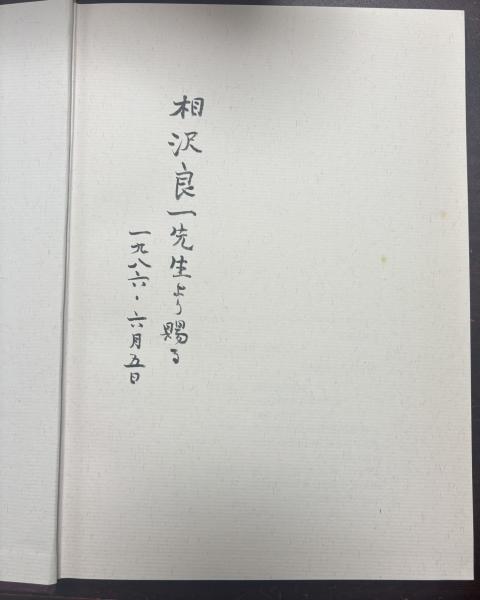 相沢良一先生より賜る
一九八六・六月五日